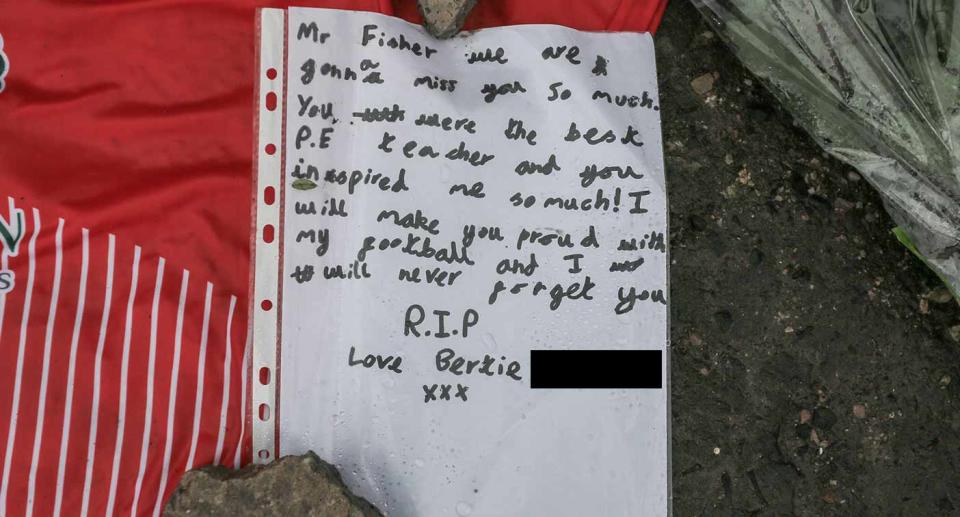 Mr Fisher we are
gonna miss you so much.
You were the best
P.E teacher and you
inspired me so much! I
will make you proud with
my football and I
will never forget you
R.I.P
Love Bertie
xxx